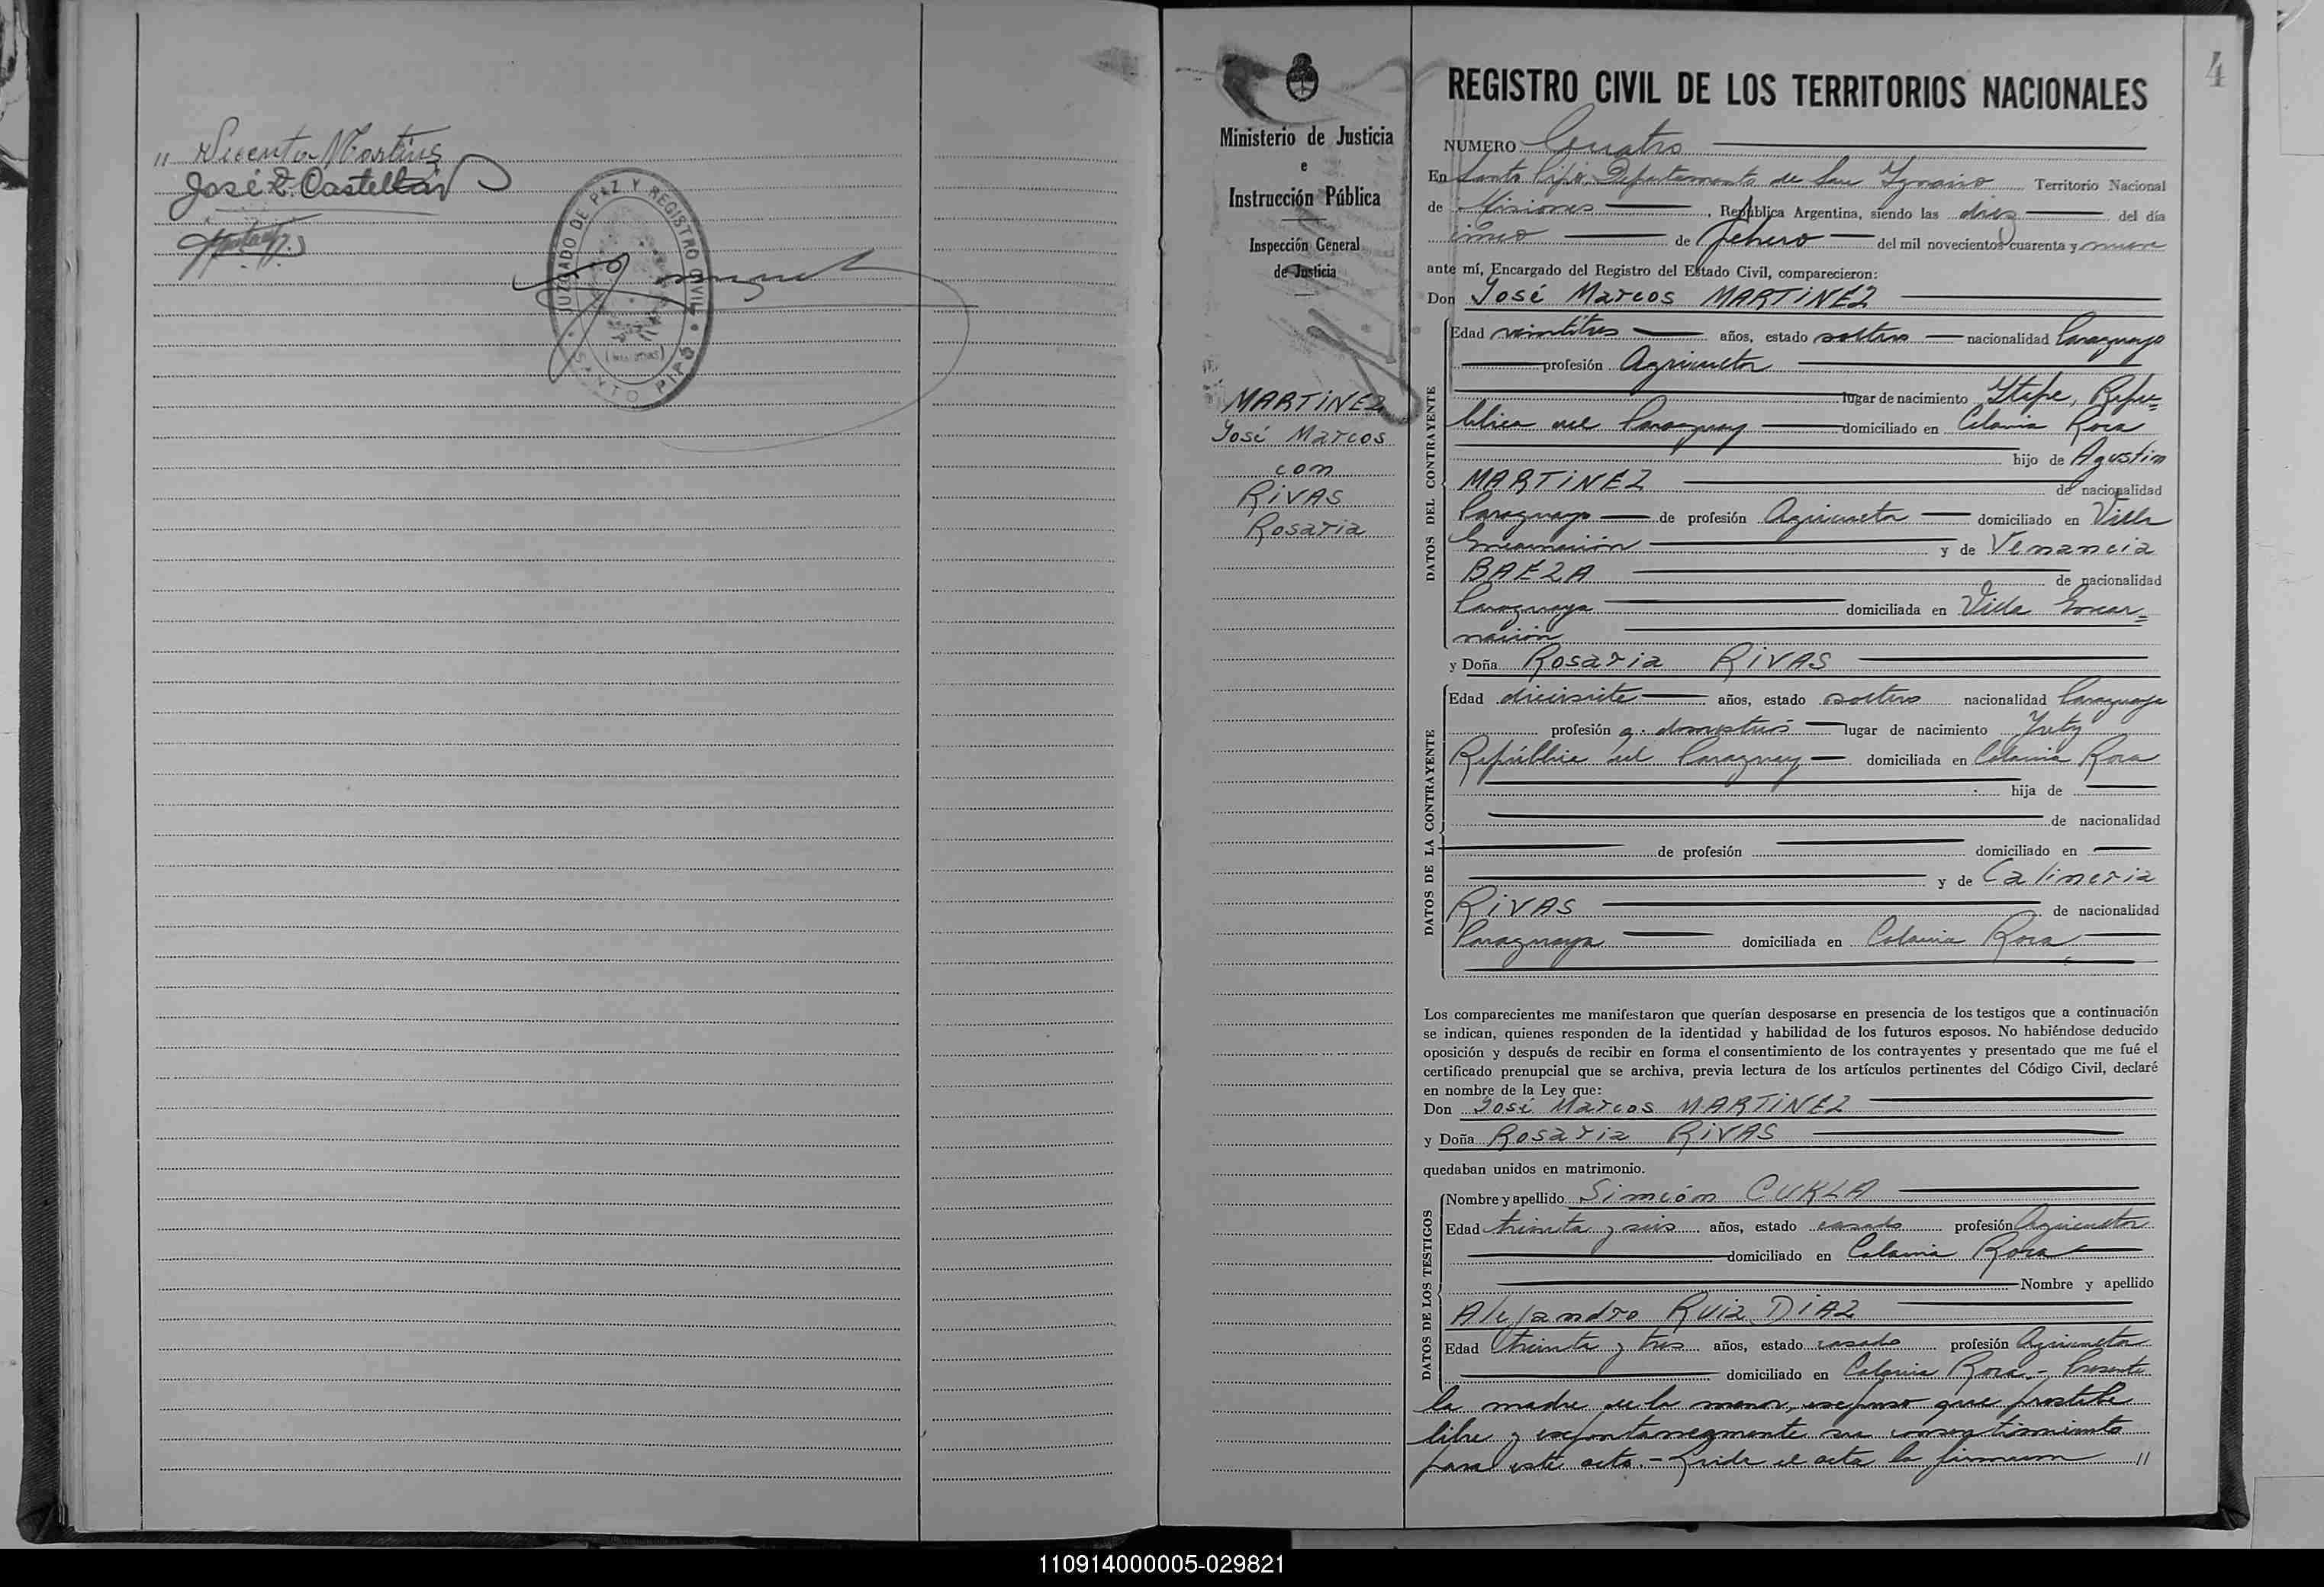 " Vicente Martins
José Z. Castellán
JUZGADO DE PAZ Y REGISTRO CIVIL
SANTO PIPÓ
(MISIONES)
4
Ministerio de Justicia
e
Instrucción Pública
Inspección General
de Justicia
MARTINEZ
José Marcos
con
RIVAS
Rosaria
REGISTRO CIVIL DE LOS TERRITORIOS NACIONALES
NUMERO Cuatro
En Santo Pipó, Departamento de San Ignacio Territorio Nacional
de Misiones, República Argentina, siendo las diez del día
cinco de febrero del mil novecientos cuarenta y nueve
ante mí, Encargado del Registro del Estado Civil, comparecieron:
Don José Marcos MARTINEZ
DATOS DEL CONTRAYENTE
Edad veintitres años, estado soltero nacionalidad Paraguayo
profesión Agricultor
lugar de nacimiento Itape, Repú=
blica del Paraguay domiciliado en Colonia Roca
hijo de Agustin
MARTINEZ de nacionalidad
Paraguayo de profesión Agricultor domiciliado en Villa
Encarnación y de Venancia
BAEZA de nacionalidad
Paraguaya domiciliada en Villa Encar=
nación
y Doña Rosaria RIVAS
DATOS DE LA CONTRAYENTE
Edad diecisiete años, estado soltera nacionalidad Paraguaya
profesión q. domésticos lugar de nacimiento Yuty
República del Paraguay domiciliada en Colonia Roca
hija de
de nacionalidad
de profesión domiciliado en
y de Calimeria
RIVAS de nacionalidad
Paraguaya domiciliada en Colonia Roca
Los comparecientes me manifestaron que querían desposarse en presencia de los testigos que a continuación
se indican, quienes responden de la identidad y habilidad de los futuros esposos. No habiéndose deducido
oposición y después de recibir en forma el consentimiento de los contrayentes y presentado que me fué el
certificado prenupcial que se archiva, previa lectura de los artículos pertinentes del Código Civil, declaré
en nombre de la Ley que:
Don José Marcos MARTINEZ
y Doña Rosaria RIVAS
quedaban unidos en matrimonio.
DATOS DE LOS TESTIGOS
Nombre y apellido Simeón CUKLA
Edad treinta y seis años, estado casado profesión Agricultor
domiciliado en Colonia Roca
Nombre y apellido
Alejandro Ruiz DIAZ
Edad treinta y tres años, estado casado profesión Agricultor
domiciliado en Colonia Roca.- Presente
la madre de la menor, expuso que prestaba
libre y espontaneamente su consentimiento
para este acto.- Leida el acta la firmaron "
110914000005-029821